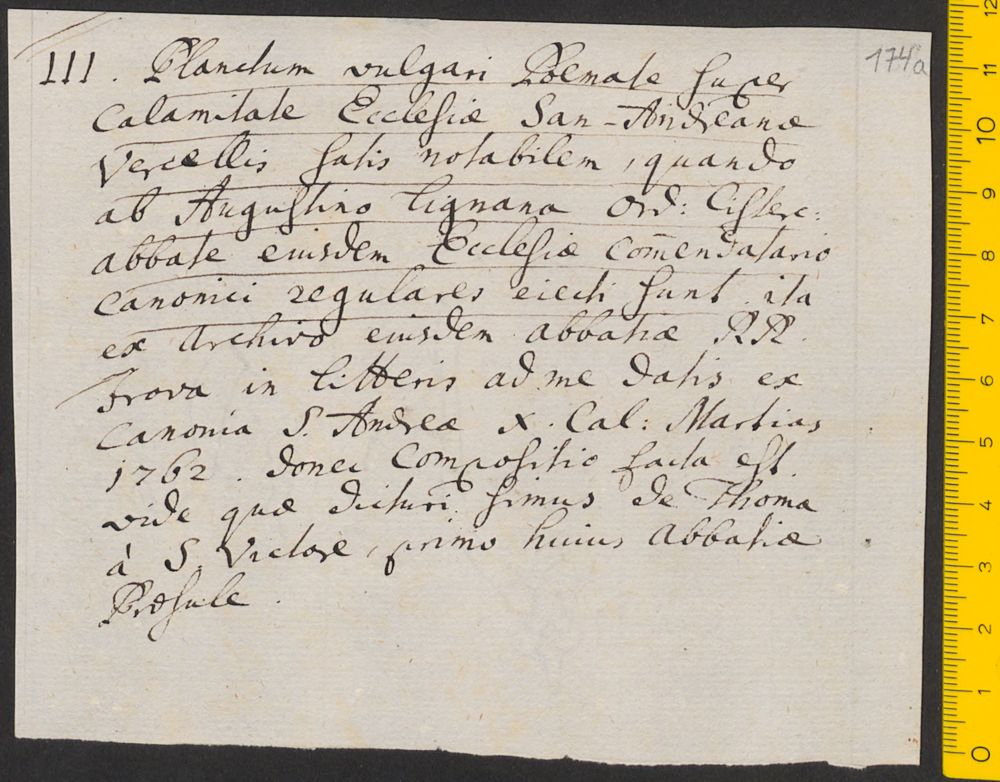 174a
III. Planctum vulgari Poemate super
calamitate Ecclesiæ San-Andreanæ
Vercellis satis notabilem, quando
ab Augustino Lignana Ord: Cisterc:
abbate eiusdem Ecclesiæ com̄endatario
canonici regulares eiecti sunt. ita
ex Archivo eiusdem abbatiæ RR.
Frova in litteris ad me datis ex
Canonia S. Andreæ X. Cal: Martias
1762. donec Compositio facta est.
vide quæ dicturi simus de Thoma
à S. Victore, primo huius Abbatiæ
Præsule.
0 1 2 3 4 5 6 7 8 9 10 11 12